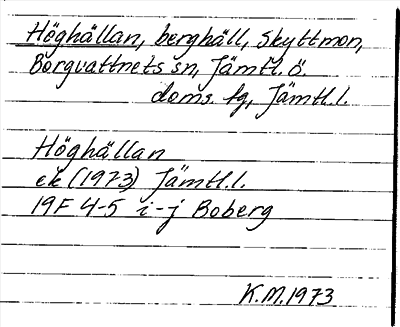 Höghällan, berghäll, Skyttmon,
Borgvattnets sn, Jämtl. ö.
doms. fg, Jämtl.l.
Höghällan
ek (1973) Jämtl.l.
19F 4-5 i-j Boberg
K.M.1973